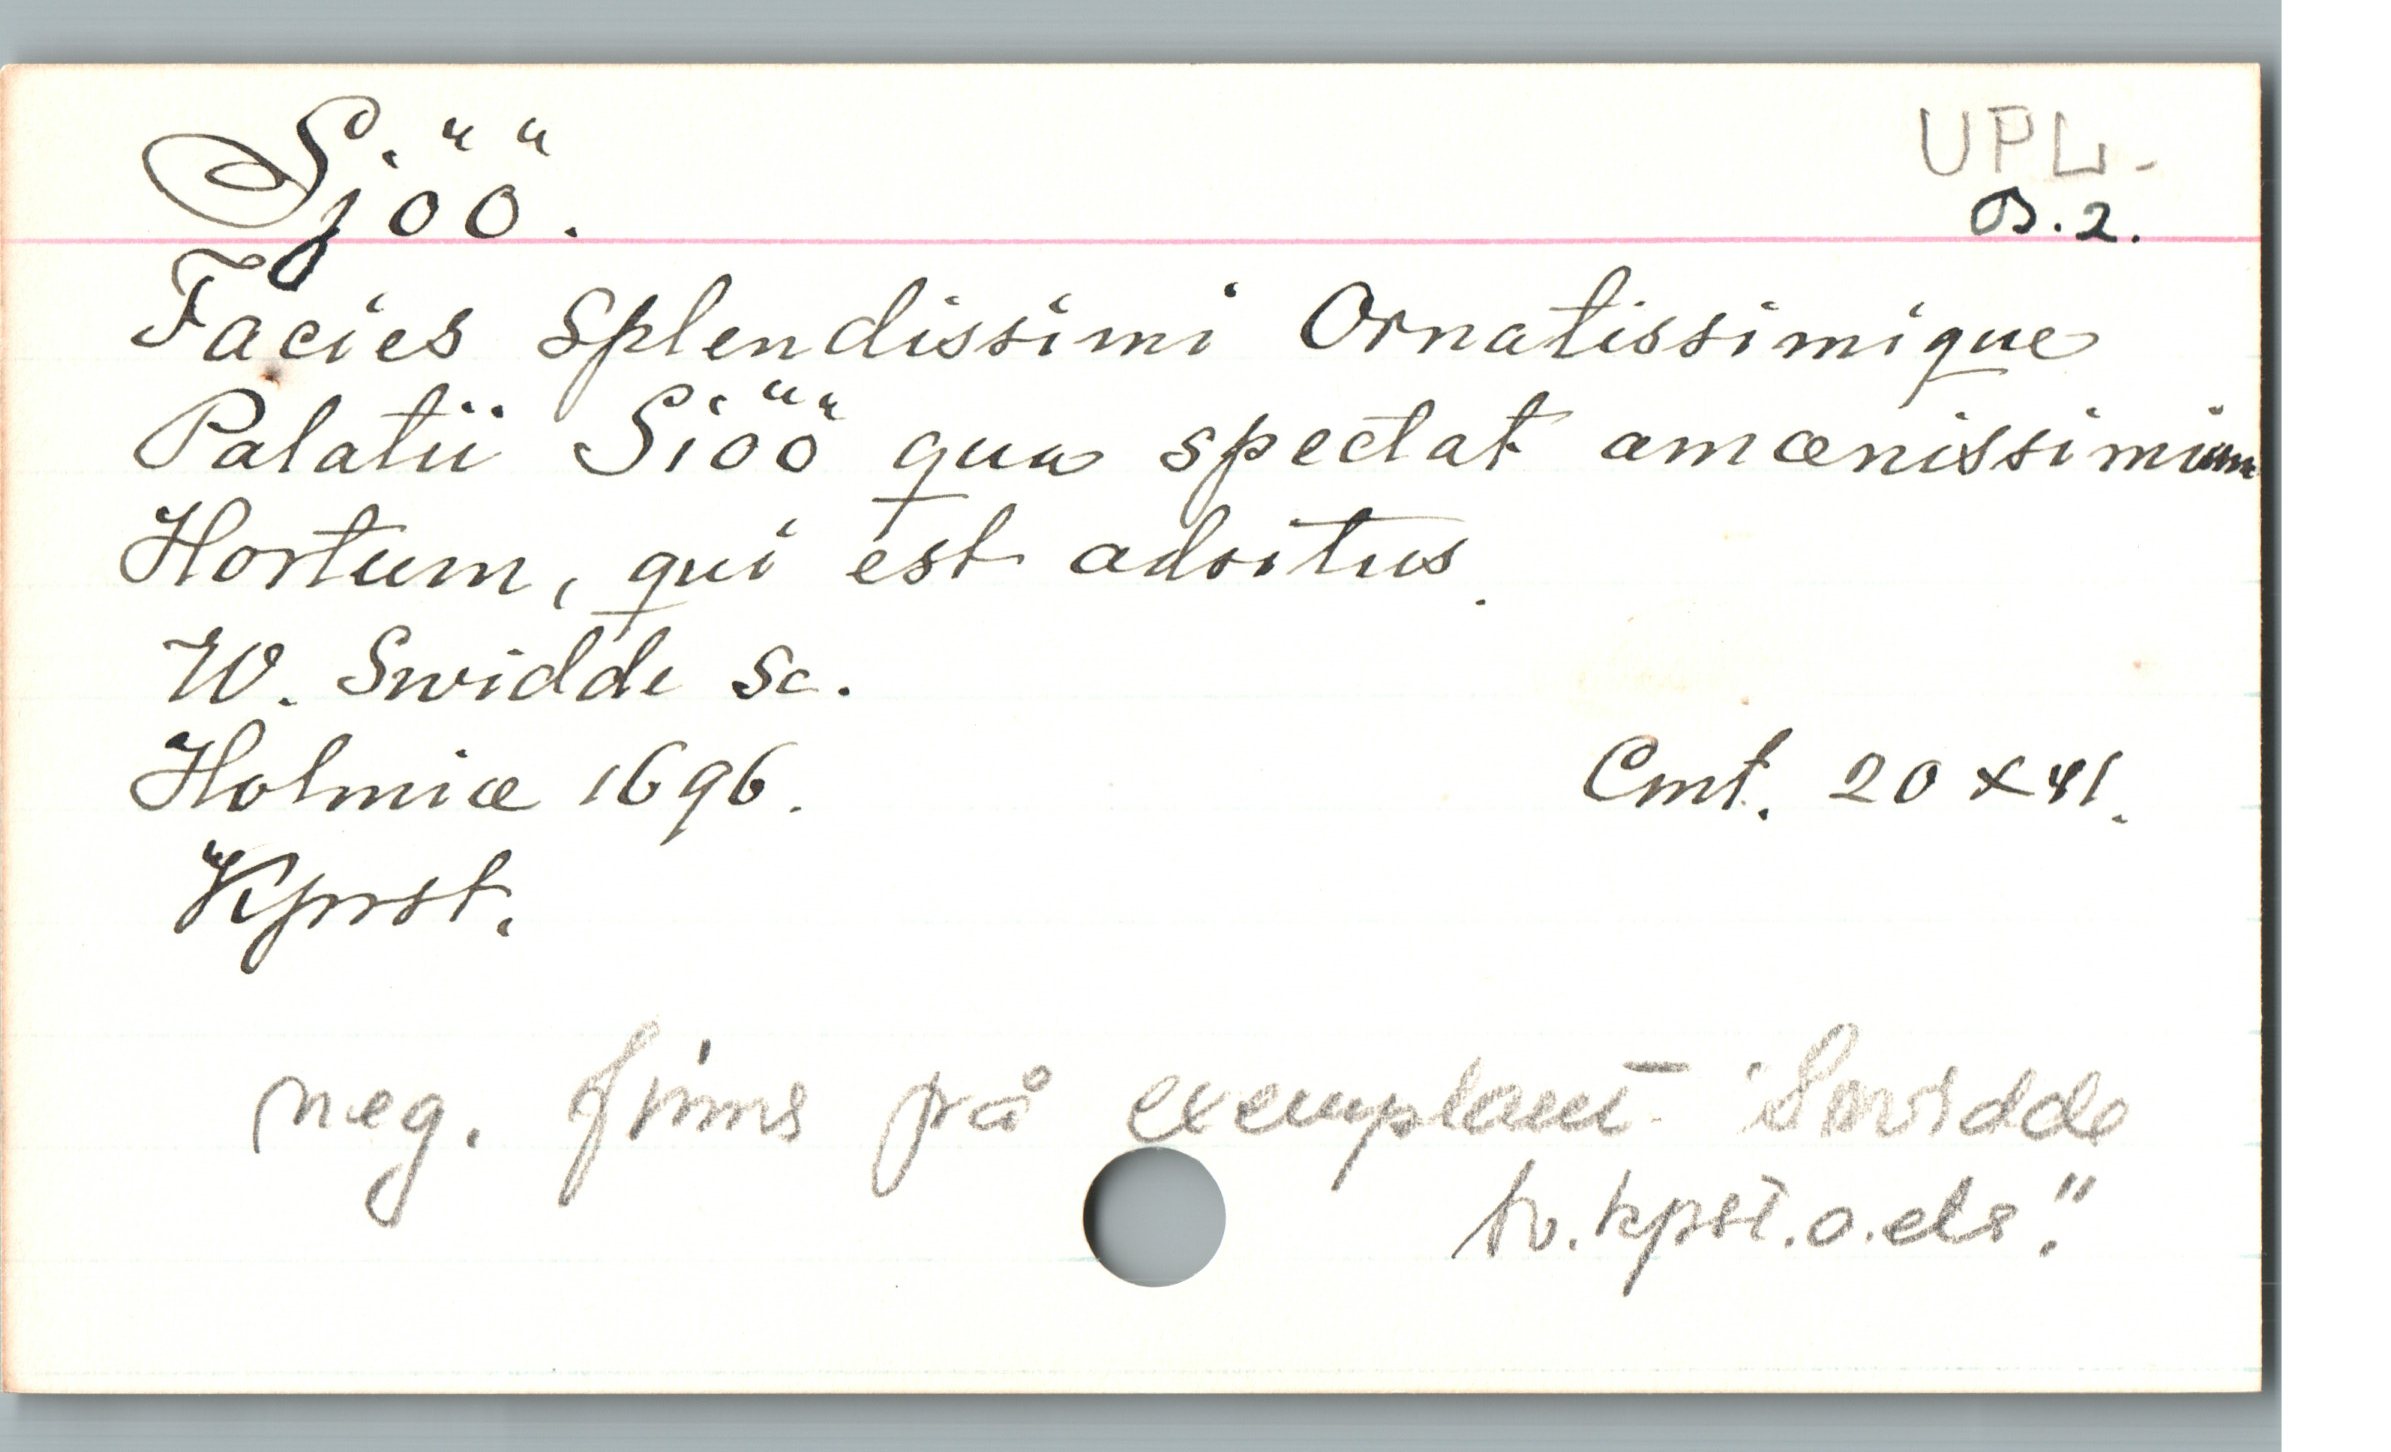 Sjöö.
UPL.
B.2.
Facies Splendissimi Ornatissimique
Palatii Siöö qua spectat amœnissimum
Hortum, qui est adsitus.
W. Swidde Sc.
Holmiæ 1696.
Cmt. 20 x 41.
Kprst.
neg. finns på exemplaret i Swidde
kpst. o. ets"